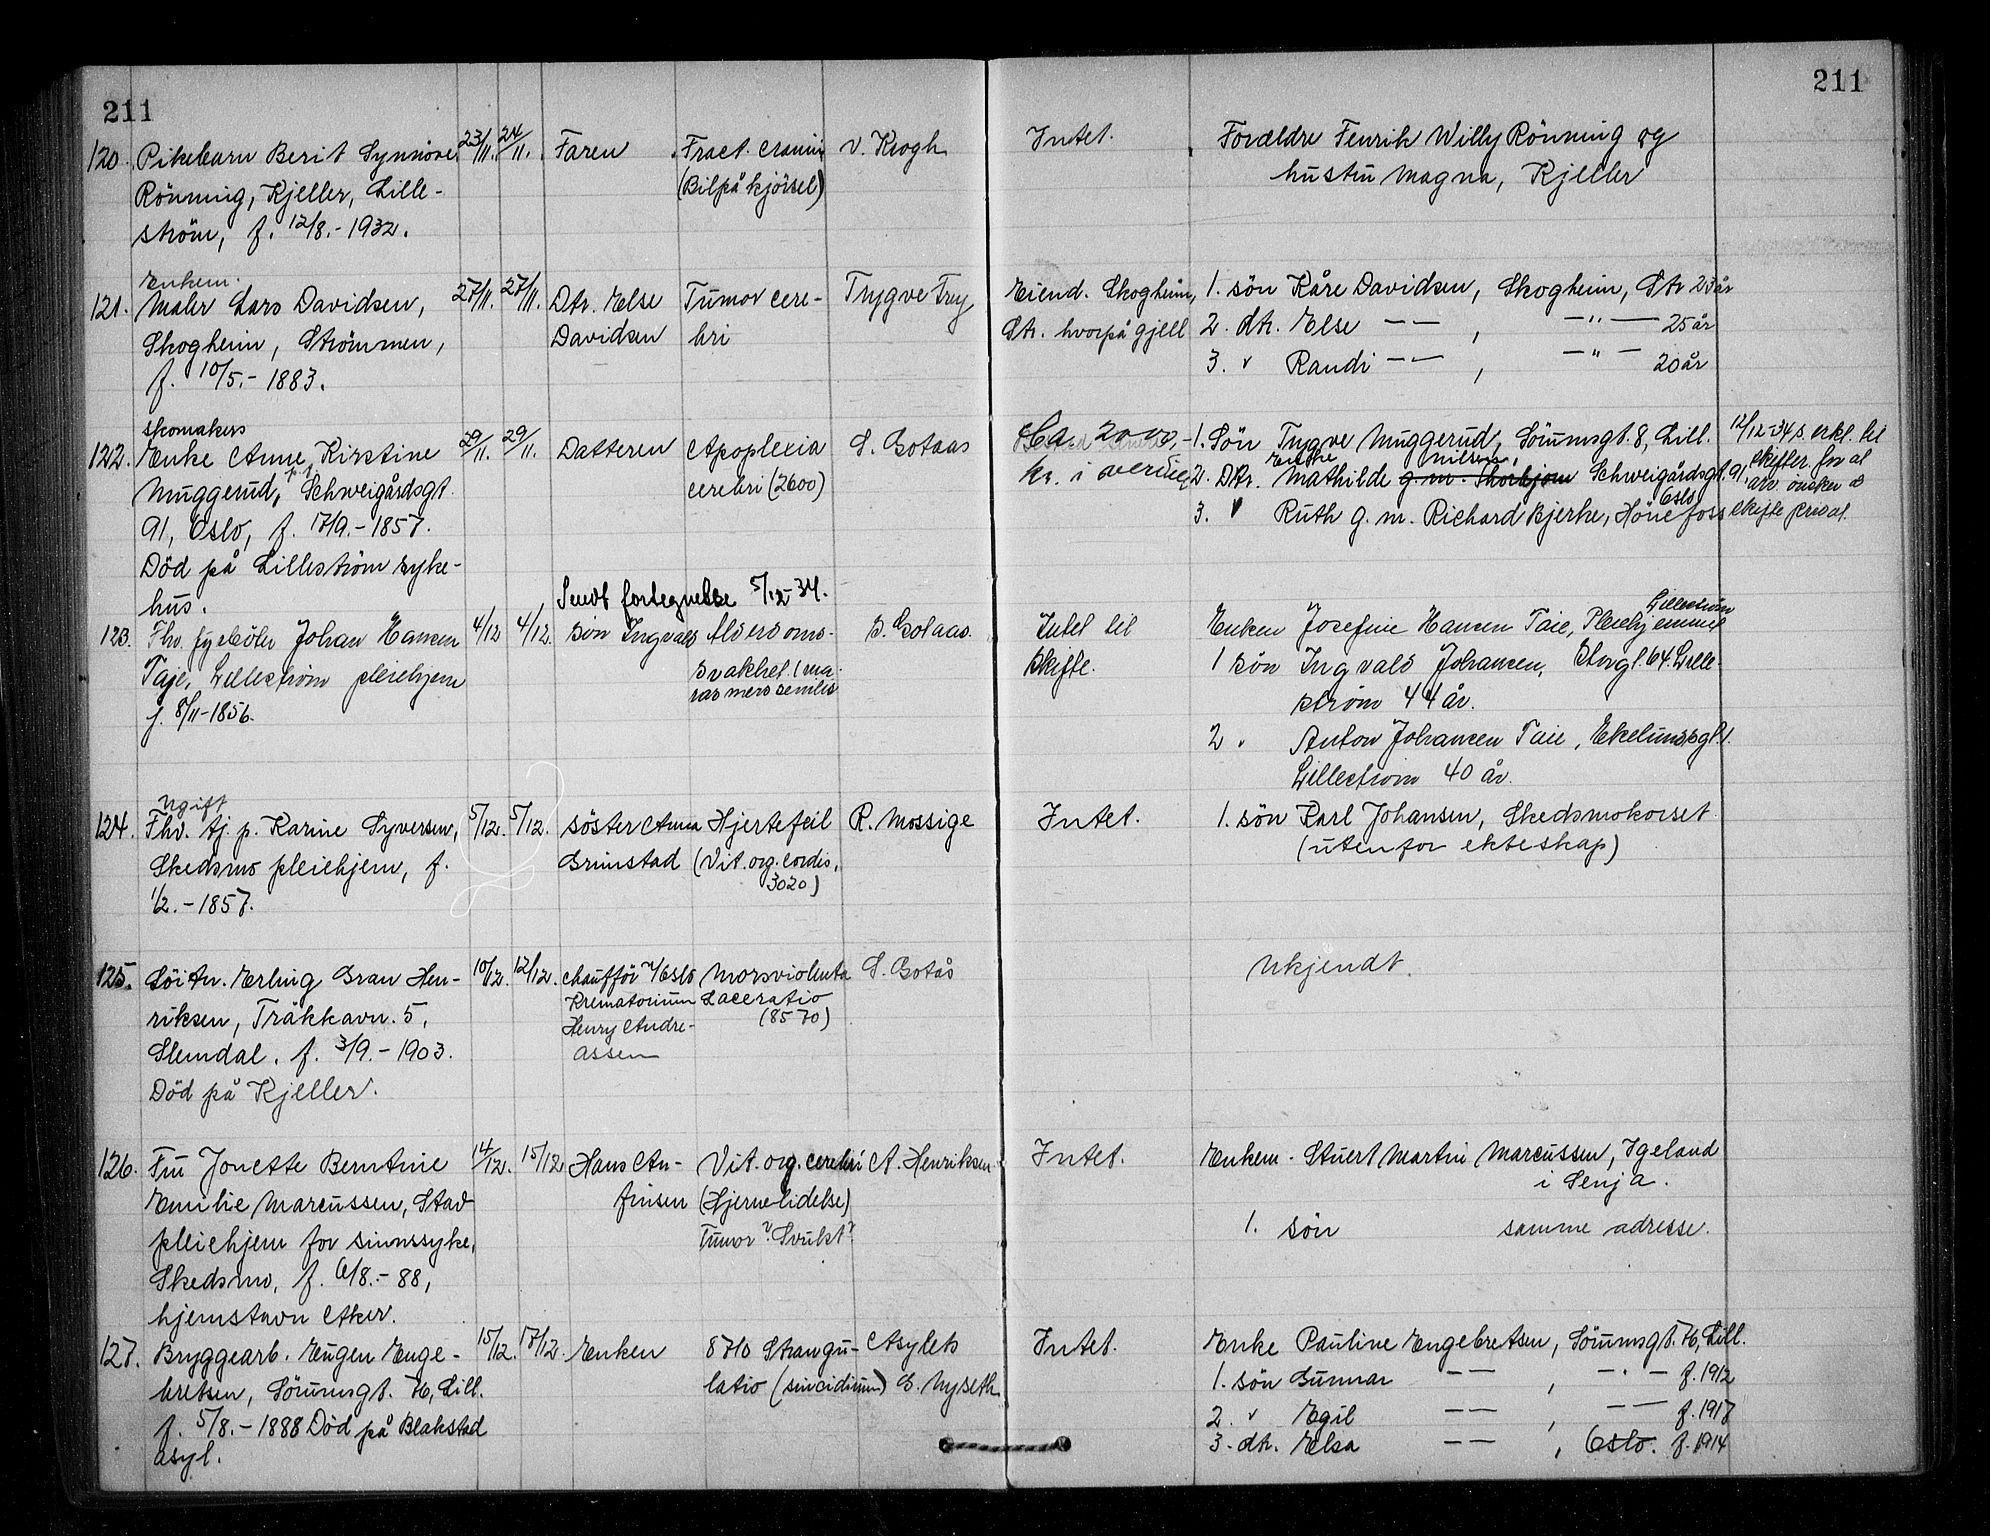 211
211
120. Pikebarn Berit Synnöve 23/11. 24/11. Faren Fract. cranii v. Krogh Intet. Foreldre Fenrik Willy Rönning og
Rönning, Kjeller, Lille- (Bilpåkjörsel) hustru Magna, Kjeller
ström, f. 12/8.-1932.
Enkem.
121. Maler Lars Davidsen, 27/11. 27/11. Dtr. Else Tumor cere- Trygve Frey Eiend. Skogheim, 1. sön Kåre Davidsen, Skogheim, Str 23 år
Skogheim, Strömmen, Davidsen bri Str. hvorpå gjell 2. dtr. Else —— , —"— 25 år
f. 10/5.-1883. 3. " Randi —— , —"— 20 år
Skomakers
122. Enke Anne Kirstine 29/11. 29/11. Datteren Apoplexia S. Gotaas Ca. 2000,- 1. Sön Trygve Muggerud, Sörumsgt. 8, Lill. 12/12-34 s. erkl. til
Muggerud, Schweigårdsgt. cerebri (2600) kr. i 2. Dtr. Enke Mathilde g. m. Thorbjörn Nilsen, Schweigårdsgt. 91, Oslo skifter. for at
91, Oslo, f. 17/9.-1857. 3. " Ruth g. m. Richard Bjerke, Hönefoss arv. önsker å skifte privat.
Död på Lilleström syke-
hus. Sendt fortegnelse 5/12-34.
123. Fhv. fyrböter Johan Hansen 4/12 4/12. Sön Ingvald Alderdoms- S. Gotaas. Intet til Enken Josefine Hansen Taie, Pleiehjemmet Lilleström
Taje, Lilleström pleiehjem svakhet. (ma- skifte. 1 sön Ingvald Johansen, Storgt. 64. Lille-
f. 8/11-1856. rasmers senilis ström 44 år.
2 " Anton Johansen Taie, Ekelundsgt. 1.
Lilleström 40 år.
Ugift
124. Fhv. tj. p. Karine Syversen, 5/12. 5/12. söster Anna Hjertefeil R. Mossige Intet. 1. sön Karl Johansen, Skedsmokorset
Skedsmo pleiehjem, f. Grimstad (Vit. org. cordis, (utenfor ekteskap)
1/2.-1857. 3020)
125. Löitn. Erling Gran Hen- 10/12. 12/12. chaufför v/Oslo Mors violenta S. Gotås Ukjendt.
riksen, Tråkkavn. 5, Krematorium Laceratio
Slemdal. f. 3/9.-1903. Henry Andre- (8570)
Död på Kjeller. assen
126. Fru Jonette Berntine 14/12. 15/12 Hans An- Vit. org. cerebri A. Henriksen. Intet. Enkem. Stuert Martin Marcussen, Igeland
Emilie Marcussen, Stav finsen (Hjernelidelse) i Senja.
pleiehjem for sinnssyke, Tumor? Svulst? 1. sön samme adresse.
Skedsmo, f. 6/8.-88,
hjemstavn Aker.
127. Bryggearb. Eugen Enge- 15/12. 17/12. Enken 8710 Strangu- Asylets Intet. Enke Pauline Engebretsen, Sörumsgt. 76, Lill.
bretsen, Sörumsgt. 76, Lill. latio (suicidium) G. Nyseth 1. sön Gunnar —— , —"— f. 1912
f. 5/8.-1888 Död på Blakstad 2. " Egil —— , —— f. 1917
asyl. 3. dtr. Elsa —— , Oslo. f. 1914